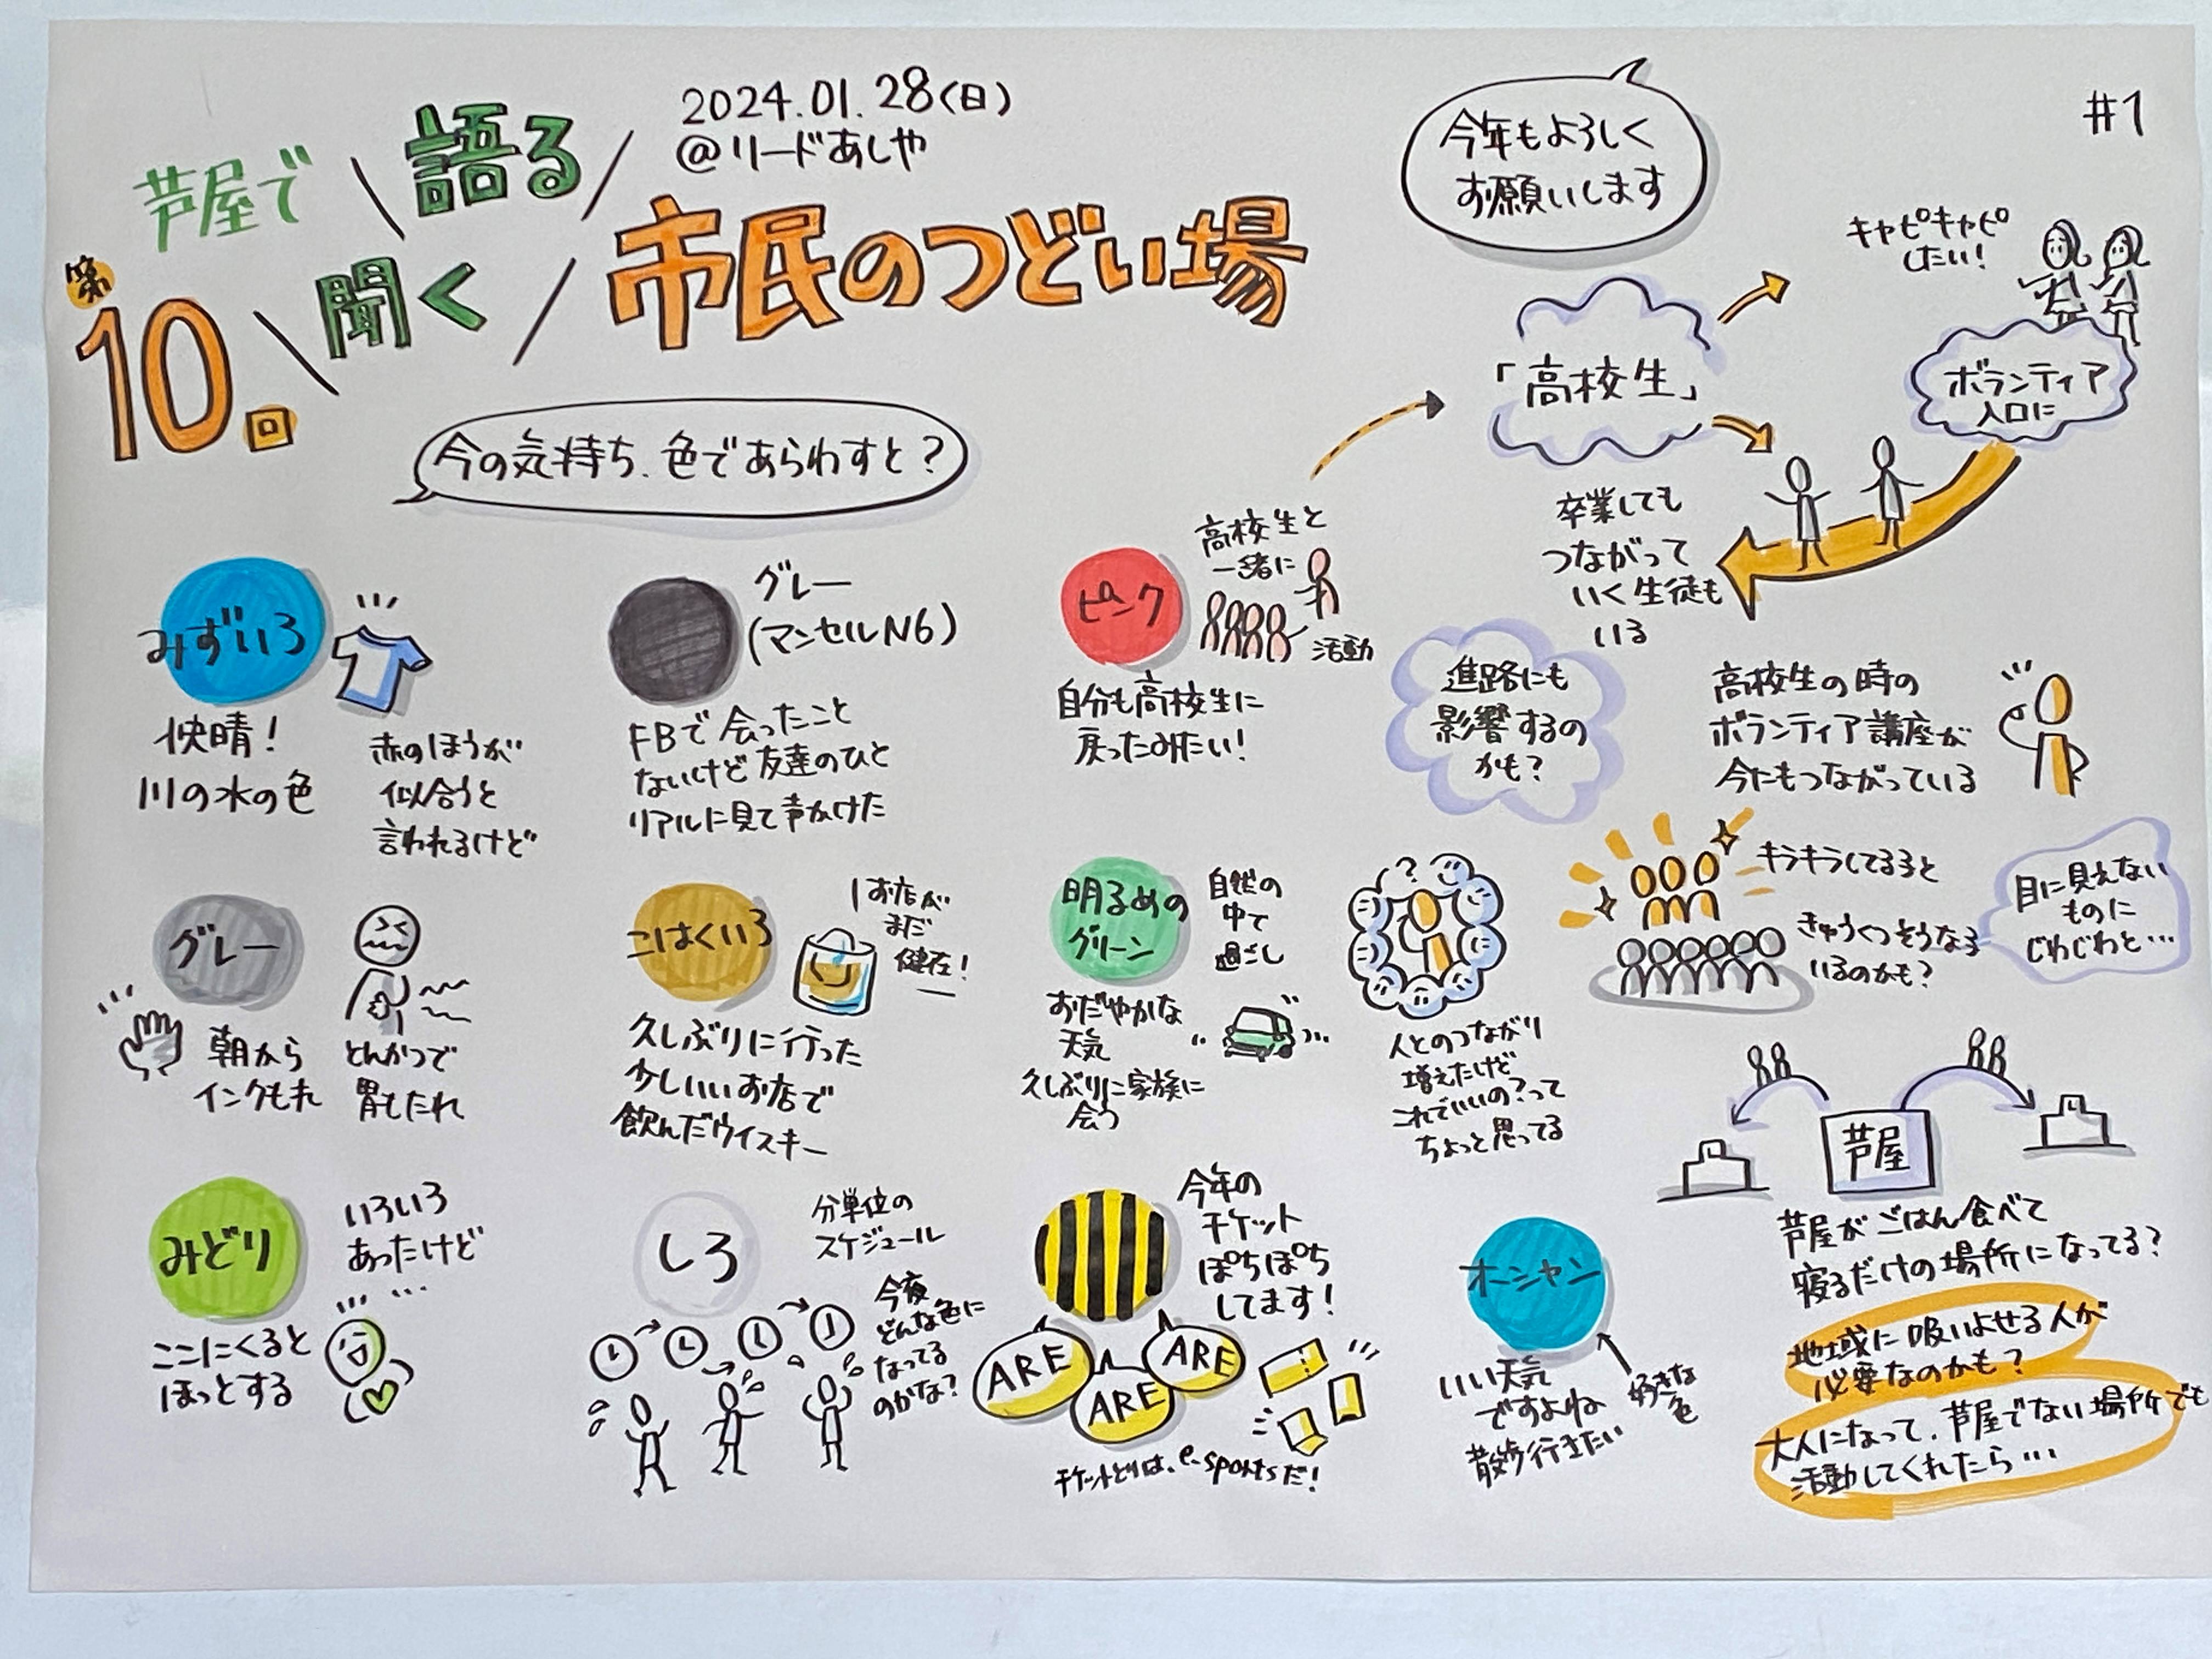 芦屋で
語る
聞く
2024.01.28(日)
@リードあしや
第
10回
市民のつどい場
今年もよろしく
お願いします
#1
今の気持ち、色であらわすと?
みずいろ
快晴!
川の水の色
赤のほうが
似合うと
言われるけど
グレー
(マンセルN6)
FBで会ったこと
ないけど友達のひと
リアルに見て声かけた
ピンク
高校生と
一緒に
活動
自分も高校生に
戻ったみたい!
「高校生」
キャピキャピ
したい!
ボランティア
入口に
卒業しても
つながって
いく生徒も
いる
進路にも
影響するの
かも?
高校生の時の
ボランティア講座が
今にもつながっている
キラキラしてる子と
きゅうくつそうな子
いるのかも?
目に見えない
ものに
じわじわと…
グレー
朝から
インクもれ
とんかつで
胃もたれ
こはくいろ
お店が
まだ
健在!
久しぶりに行った
少しいいお店で
飲んだウイスキー
明るめの
グリーン
自然の
中で
過ごし
おだやかな
天気
久しぶりに家族に
会う
?
人とのつながり
増えたけど
これでいいの?って
ちょっと思ってる
みどり
いろいろ
あったけど
…
ここにくると
ほっとする
しろ
分単位の
スケジュール
今夜
どんな色に
なってる
のかな?
今年の
チケット
ぽちぽち
してます!
ARE
ARE
ARE
チケットとりは、e-sportsだ!
オーシャン
いい天気
ですよね
散歩行きたい
好きな
色
芦屋
芦屋がごはん食べて
寝るだけの場所になってる?
地域に吸いよせる人が
必要なのかも?
大人になって、芦屋でない場所でも
活動してくれたら…